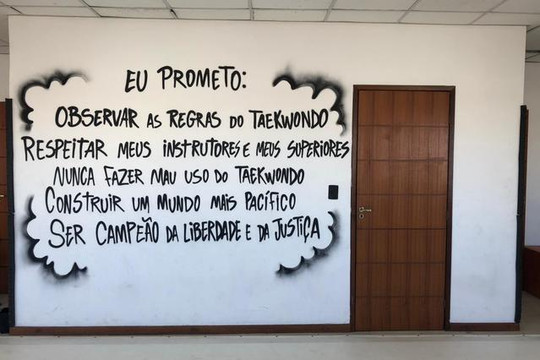 EU PROMETO:
OBSERVAR AS REGRAS DO TAEKWONDO
RESPEITAR MEUS INSTRUTORES E MEUS SUPERIORES
NUNCA FAZER MAU USO DO TAEKWONDO
CONSTRUIR UM MUNDO MAIS PACÍFICO
SER CAMPEÃO DA LIBERDADE E DA JUSTIÇA